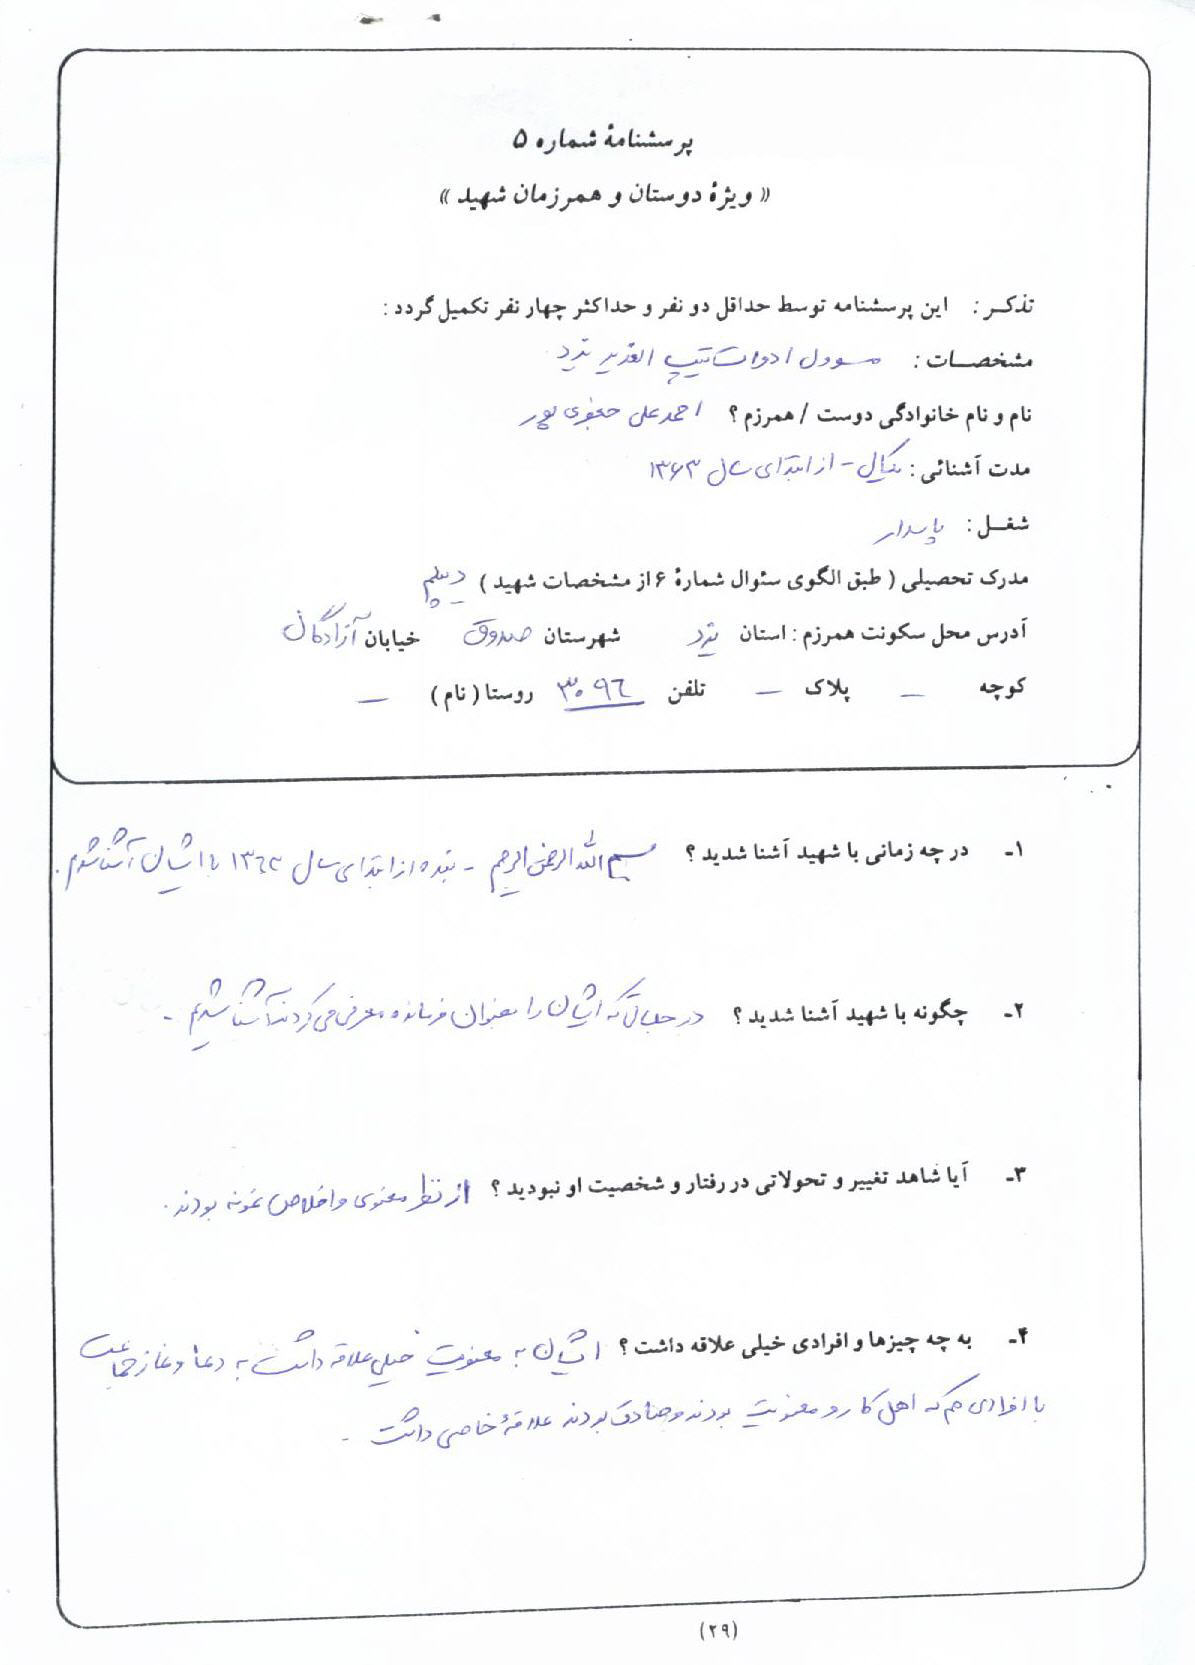 پرسشنامهٔ شماره ۵
« ویژهٔ دوستان و همرزمان شهید »
تذکر : این پرسشنامه توسط حداقل دو نفر و حداکثر چهار نفر تکمیل گردد :
مشخصات : مسوول ادوات تیپ الغدیر یزد
نام و نام خانوادگی دوست / همرزم ؟ احمد علی جعفری پور
مدت آشنائی : یکسال - از ابتدای سال ۱۳۶۳
شغل : پاسدار
مدرک تحصیلی ( طبق الگوی سئوال شمارهٔ ۶ از مشخصات شهید ) دیپلم
آدرس محل سکونت همرزم : استان یزد شهرستان صدوق خیابان آزادگان
کوچه — پلاک — تلفن ۳۰۹۶ روستا ( نام ) —
۱ـ در چه زمانی با شهید آشنا شدید ؟ بسم الله الرحمن الرحیم - بنده از ابتدای سال ۱۳۶۳ با ایشان آشنا شدم .
۲ـ چگونه با شهید آشنا شدید ؟ در جلساتی که ایشان را بعنوان فرمانده معرفی می کردند آشنا شدیم -
۳ـ آیا شاهد تغییر و تحولاتی در رفتار و شخصیت او نبودید ؟ از نظر معنوی و اخلاص نمونه بودند .
۴ـ به چه چیزها و افرادی خیلی علاقه داشت ؟ ایشان به معنویت خیلی علاقه داشت به دعا و نماز جماعت
با افرادی هم که اهل کار و معنویت بودند و صادق بودند علاقهٔ خاصی داشت -
(۲۹)